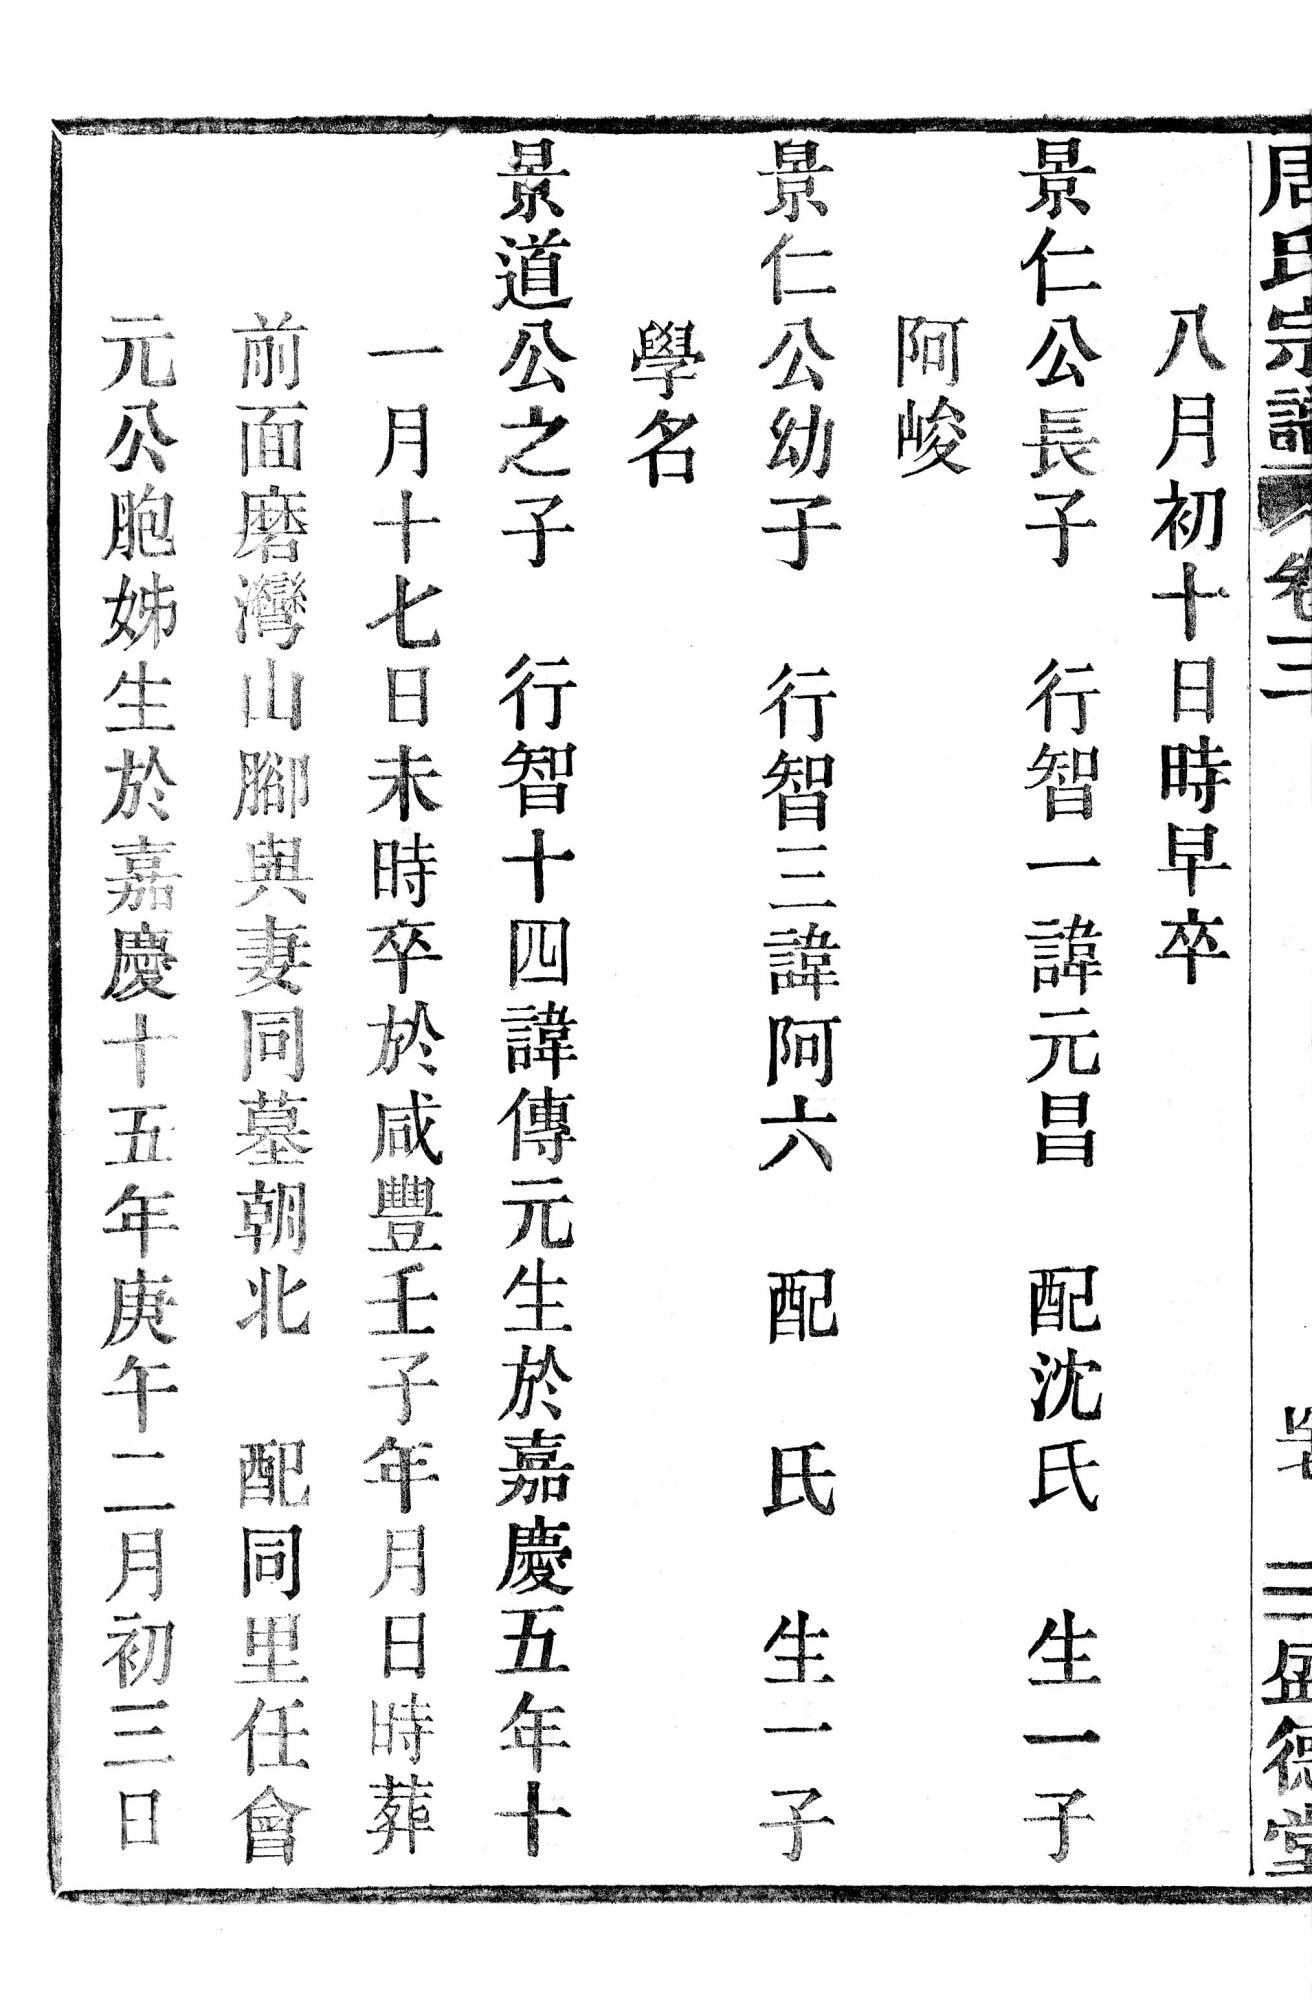 周氏宗譜 卷三 四十七 三盛德堂
八月初十日時早卒
景仁公長子 行智一諱元昌 配沈氏 生一子
阿峻
景仁公幼子 行智三諱阿六 配 氏 生一子
學名
景道公之子 行智十四諱傳元生於嘉慶五年十
一月十七日未時卒於咸豐壬子年月日時葬
前面磨灣山腳與妻同墓朝北 配同里任會
元公胞姊生於嘉慶十五年庚午二月初三日